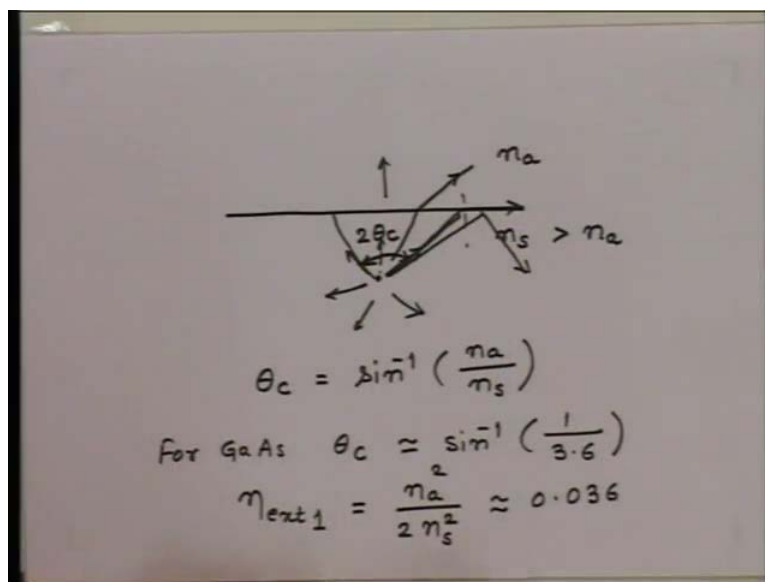 nₐ
2θc
nₛ > nₐ
θc = sin⁻¹ (nₐ/nₛ)
For GaAs θc ≃ sin⁻¹ (1/3.6)
ηext1 = nₐ²/2nₛ² ≈ 0.036